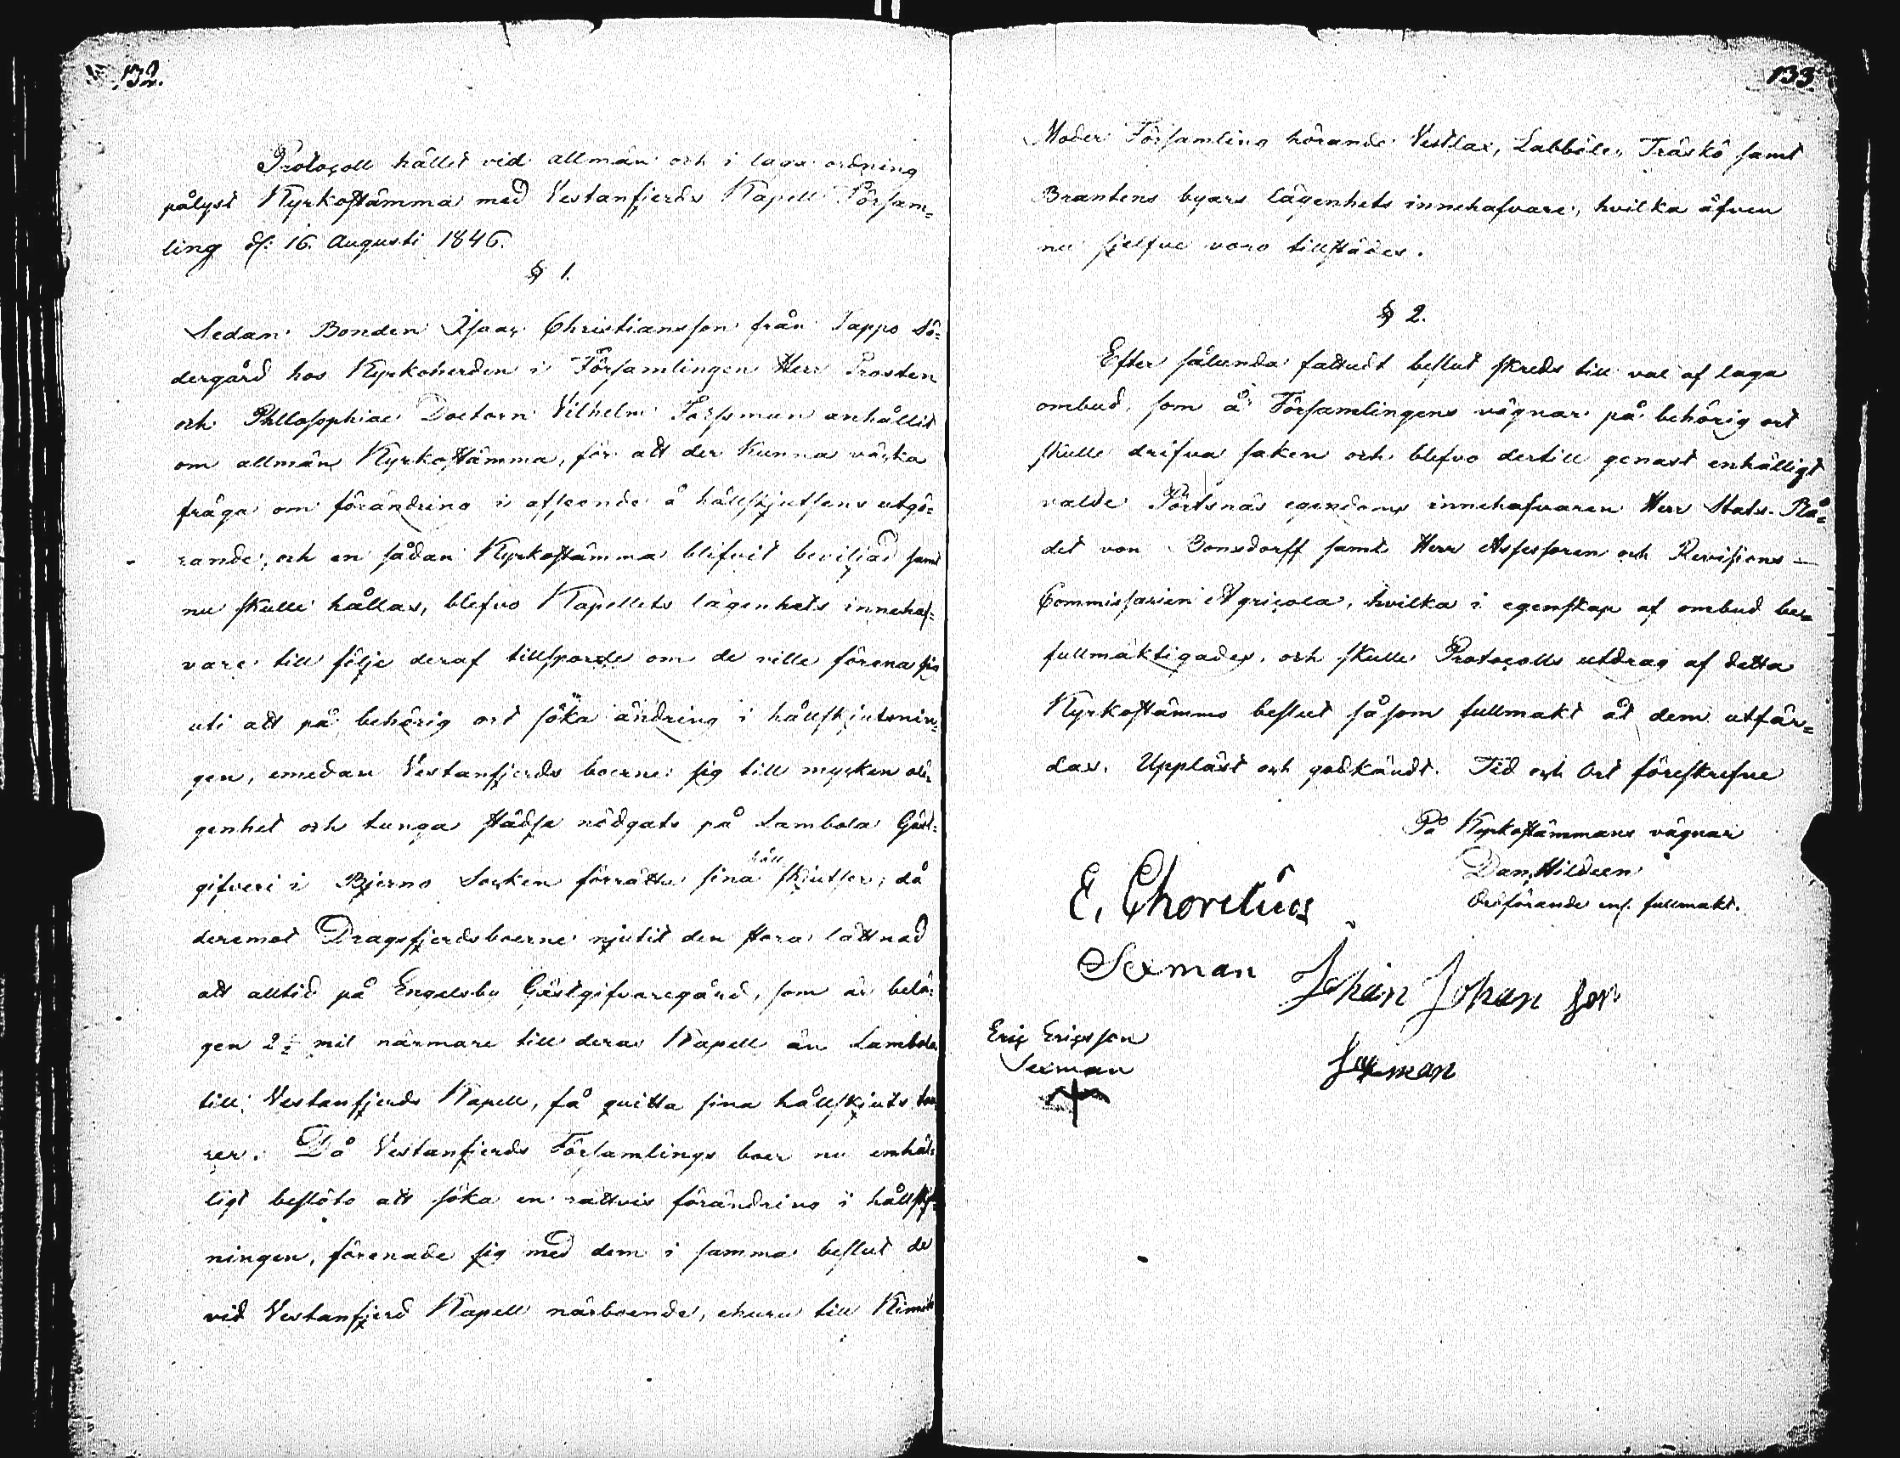 132.
Protocoll hållet vid allmän och i laga ordning
pålyst Kyrkostämma med Vestanfjerds Kapell Försam=
ling d: 16. Augusti 1846.
§ 1.
Sedan Bonden Isaac Christiansson från Tappo Sö=
dergård hos Kyrkoherden i Församlingen Herr Prosten
och Philosophiae Doctorn Vilhelm Forssman anhållit
om allmän Kyrkostämma, för att der kunna väcka
fråga om förändring i afseende å hållskjutsens utgö=
rande, och en sådan Kyrkostämma blifvit beviljad samt
nu skulle hållas, blefvo Kapellets lägenhets innehaf=
vare till följe deraf tillsporde om de ville förena sig
uti att på behörig ort söka ändring i hållskjutsnin=
gen, emedan Vestanfjerds boerne sig till mycken olä=
genhet och tunga städse nödgats på Lambola Gäst=
gifveri i Bjerno Socken förrätta sina håll skjutser, då
deremot Dragsfjerdsboerne njutit den stora lättnad
att alltid på Engelsby Gästgifvaregård, som är belä=
gen 2 1/2 mil närmare till deras Kapell än Lambola
till Vestanfjerds Kapell, få quitta sina hållskjuts tou=
rer. Då Vestanfjerds Församlings boer nu enhäl=
ligt beslöto att söka en rättvis förändring i hållskjuts=
ningen, förenade sig med dem i samma beslut de
vid Vestanfjerd Kapell närboende, ehuru till Kimito
133.
Moder Församling hörande Vestlax, Labböle, Träskö samt
Brantens byars lägenhets innehafvare, hvilka äfven
nu sjelfve voro tillstädes.
§ 2.
Efter sålunda fattadt beslut skreds till val af laga
ombud, som å Församlingens vägnar på behörig ort
skulle drifva saken och blefvo dertill genast enhälligt
valde Förtsnäs egendoms innehafvaren Herr Stats-Rå=
det von Bonsdorff samt Herr Assessoren och Revisions-
Commissarien Agricola, hvilka i egenskap af ombud be=
fullmäktigades, och skulle Protocolls utdrag af detta
Kyrkostämmo beslut såsom fullmakt åt dem utfär=
das. Uppläst och godkändt. Tid och Ort föreskrefne
På Kyrkostämmans vägnar
Dan. Hildeen
Ordförande enl. fullmakt.
E. Chorelius
Sexman
Johan Johan son
Sexman
Eric Ericsson
Sexman